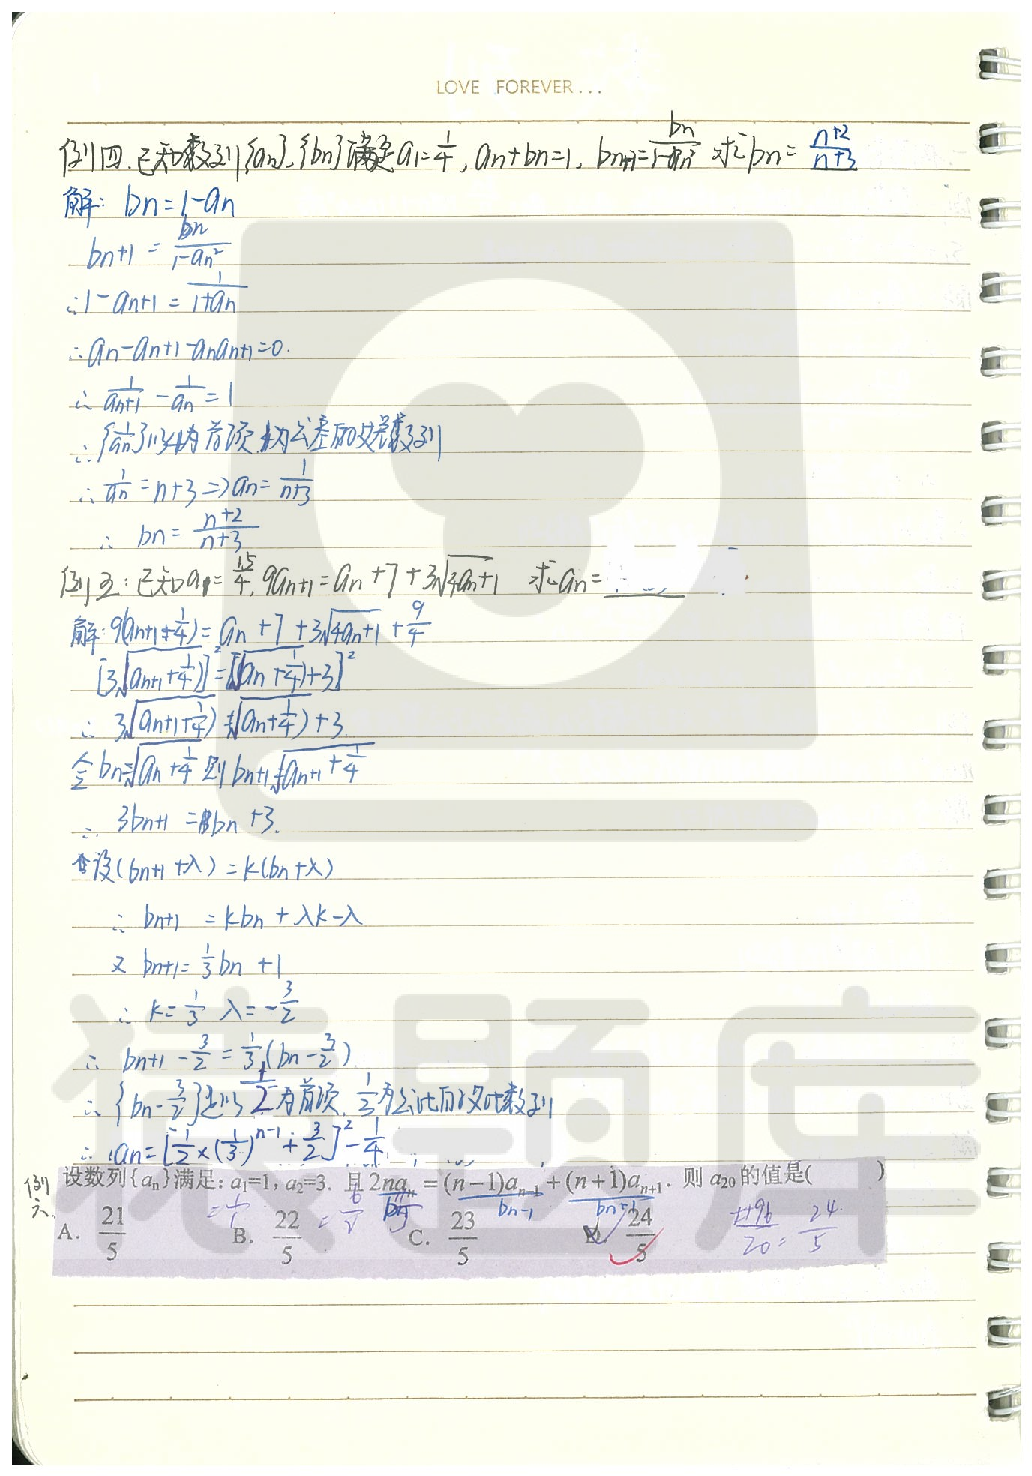 LOVE FOREVER...
例四.已知数列{an},{bn}满足a1=1/4, an+bn=1, bn+1=bn/1-an² 求bn= n+2/n+3
解: bn=1-an
bn+1 = bn/1-an²
∴1-an+1 = 1/1+an
∴an-an+1-anan+1=0.
∴ 1/an+1 - 1/an = 1
∴{1/an}以4为首项,1为公差的等差数列
∴ 1/an = n+3 => an= 1/n+3
∴ bn= n+2/n+3
例五:已知a1= 15/4, 9an+1=an+7+3√4an+1 求an=
解:9(an+1+1/4)= an+7+3√4an+1+9/4
[3√(an+1+1/4)]²=[√(an+1/4)+3]²
∴ 3√(an+1+1/4)=√(an+1/4)+3
令bn=√an+1/4 则bn+1=√an+1+1/4
∴ 3bn+1=bn+3.
设(bn+1+λ)=k(bn+λ)
∴ bn+1=kbn+λk-λ
又 bn+1=1/3bn+1
∴ k=1/3 λ=-3/2
∴ bn+1-3/2=1/3(bn-3/2)
∴ {bn-3/2}是以1/2为首项,1/3为公比的等比数列
∴ an=[1/2×(1/3)n-1+3/2]²-1/4
例六 设数列{an}满足: a1=1, a2=3. 且2nan=(n-1)an-1+(n+1)an+1. 则a20的值是( )
=1/1 =6/2 bn bn-1 bn+1
A. 21/5 B. 22/5 C. 23/5 D. 24/5 1+95/20=24/5
猿题库